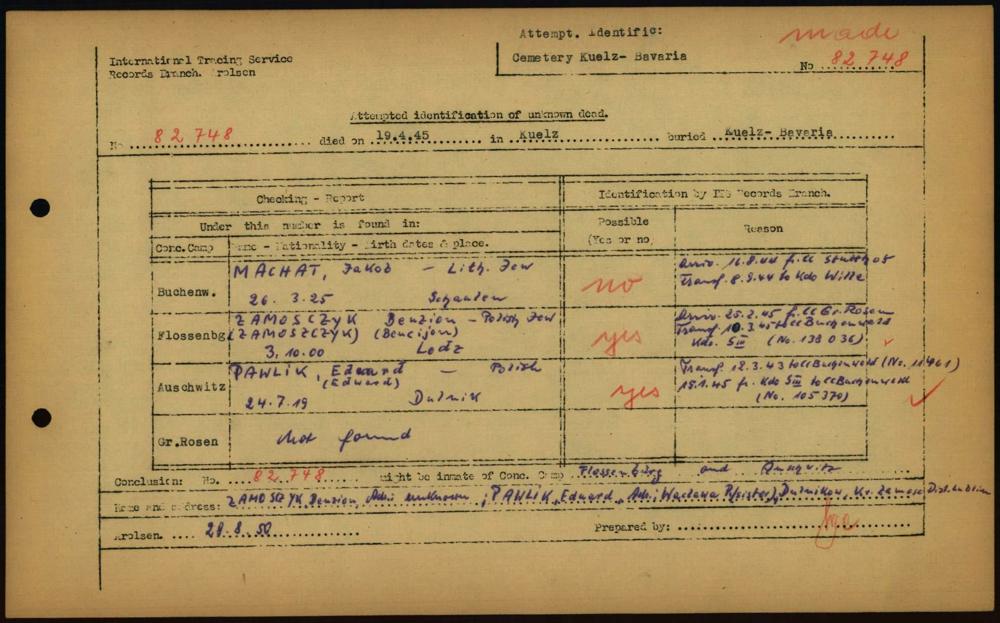 Attempt. Identific:
Cemetery Kuelz- Bavaria
made
No 82 748
International Tracing Service
Records Branch. Arolsen
Attempted identification of unknown dead.
No 82 748 died on 19.4.45 in Kuelz buried Kuelz- Bavaria
Checking - Report
Identification by ITS Records Branch.
Under this number is found in:
Possible
(Yes or no)
Reason
Conc.Camp
Name - Nationality - Birth dates & place.
Buchenw.
MACHAT, Jakob - Lith. Jew
26. 3.25 Schaulen
no
arriv. 16.8.44 f. CC Stutthof
Transf. 8.9.44 to Kdo Wille
Flossenbg.
ZAMOSCZYK Benzion - Polish Jew
(ZAMOSZCZYK) (Bencijon)
3.10.00 Lodz
yes
arriv. 25.2.45 f. CC Gr. Rosen
Transf. 10.3.45 to CC Buchenwald
Kdo. SIII (No. 138 036)
Auschwitz
PAWLIK, Edward - Polish
(Eduard)
24.7.19 Dutnik
yes
Transf. 12.3.43 to CC Buchenwald (No. 11961)
15.1.45 fr. Kdo SIII to CC Buchenwald
(No. 105370)
Gr.Rosen
Not found
Conclusion: No. 82.748 might be inmate of Conc. Camp Flossenbürg and Auschwitz
Name and address: ZAMOSCZYK Benzion, Adr. unknown; PAWLIK, Eduard, Adr.: Waclawa Dutnikow, Kr. Zamosc Distr. Lublin
Arolsen. 28.8.50 Prepared by: